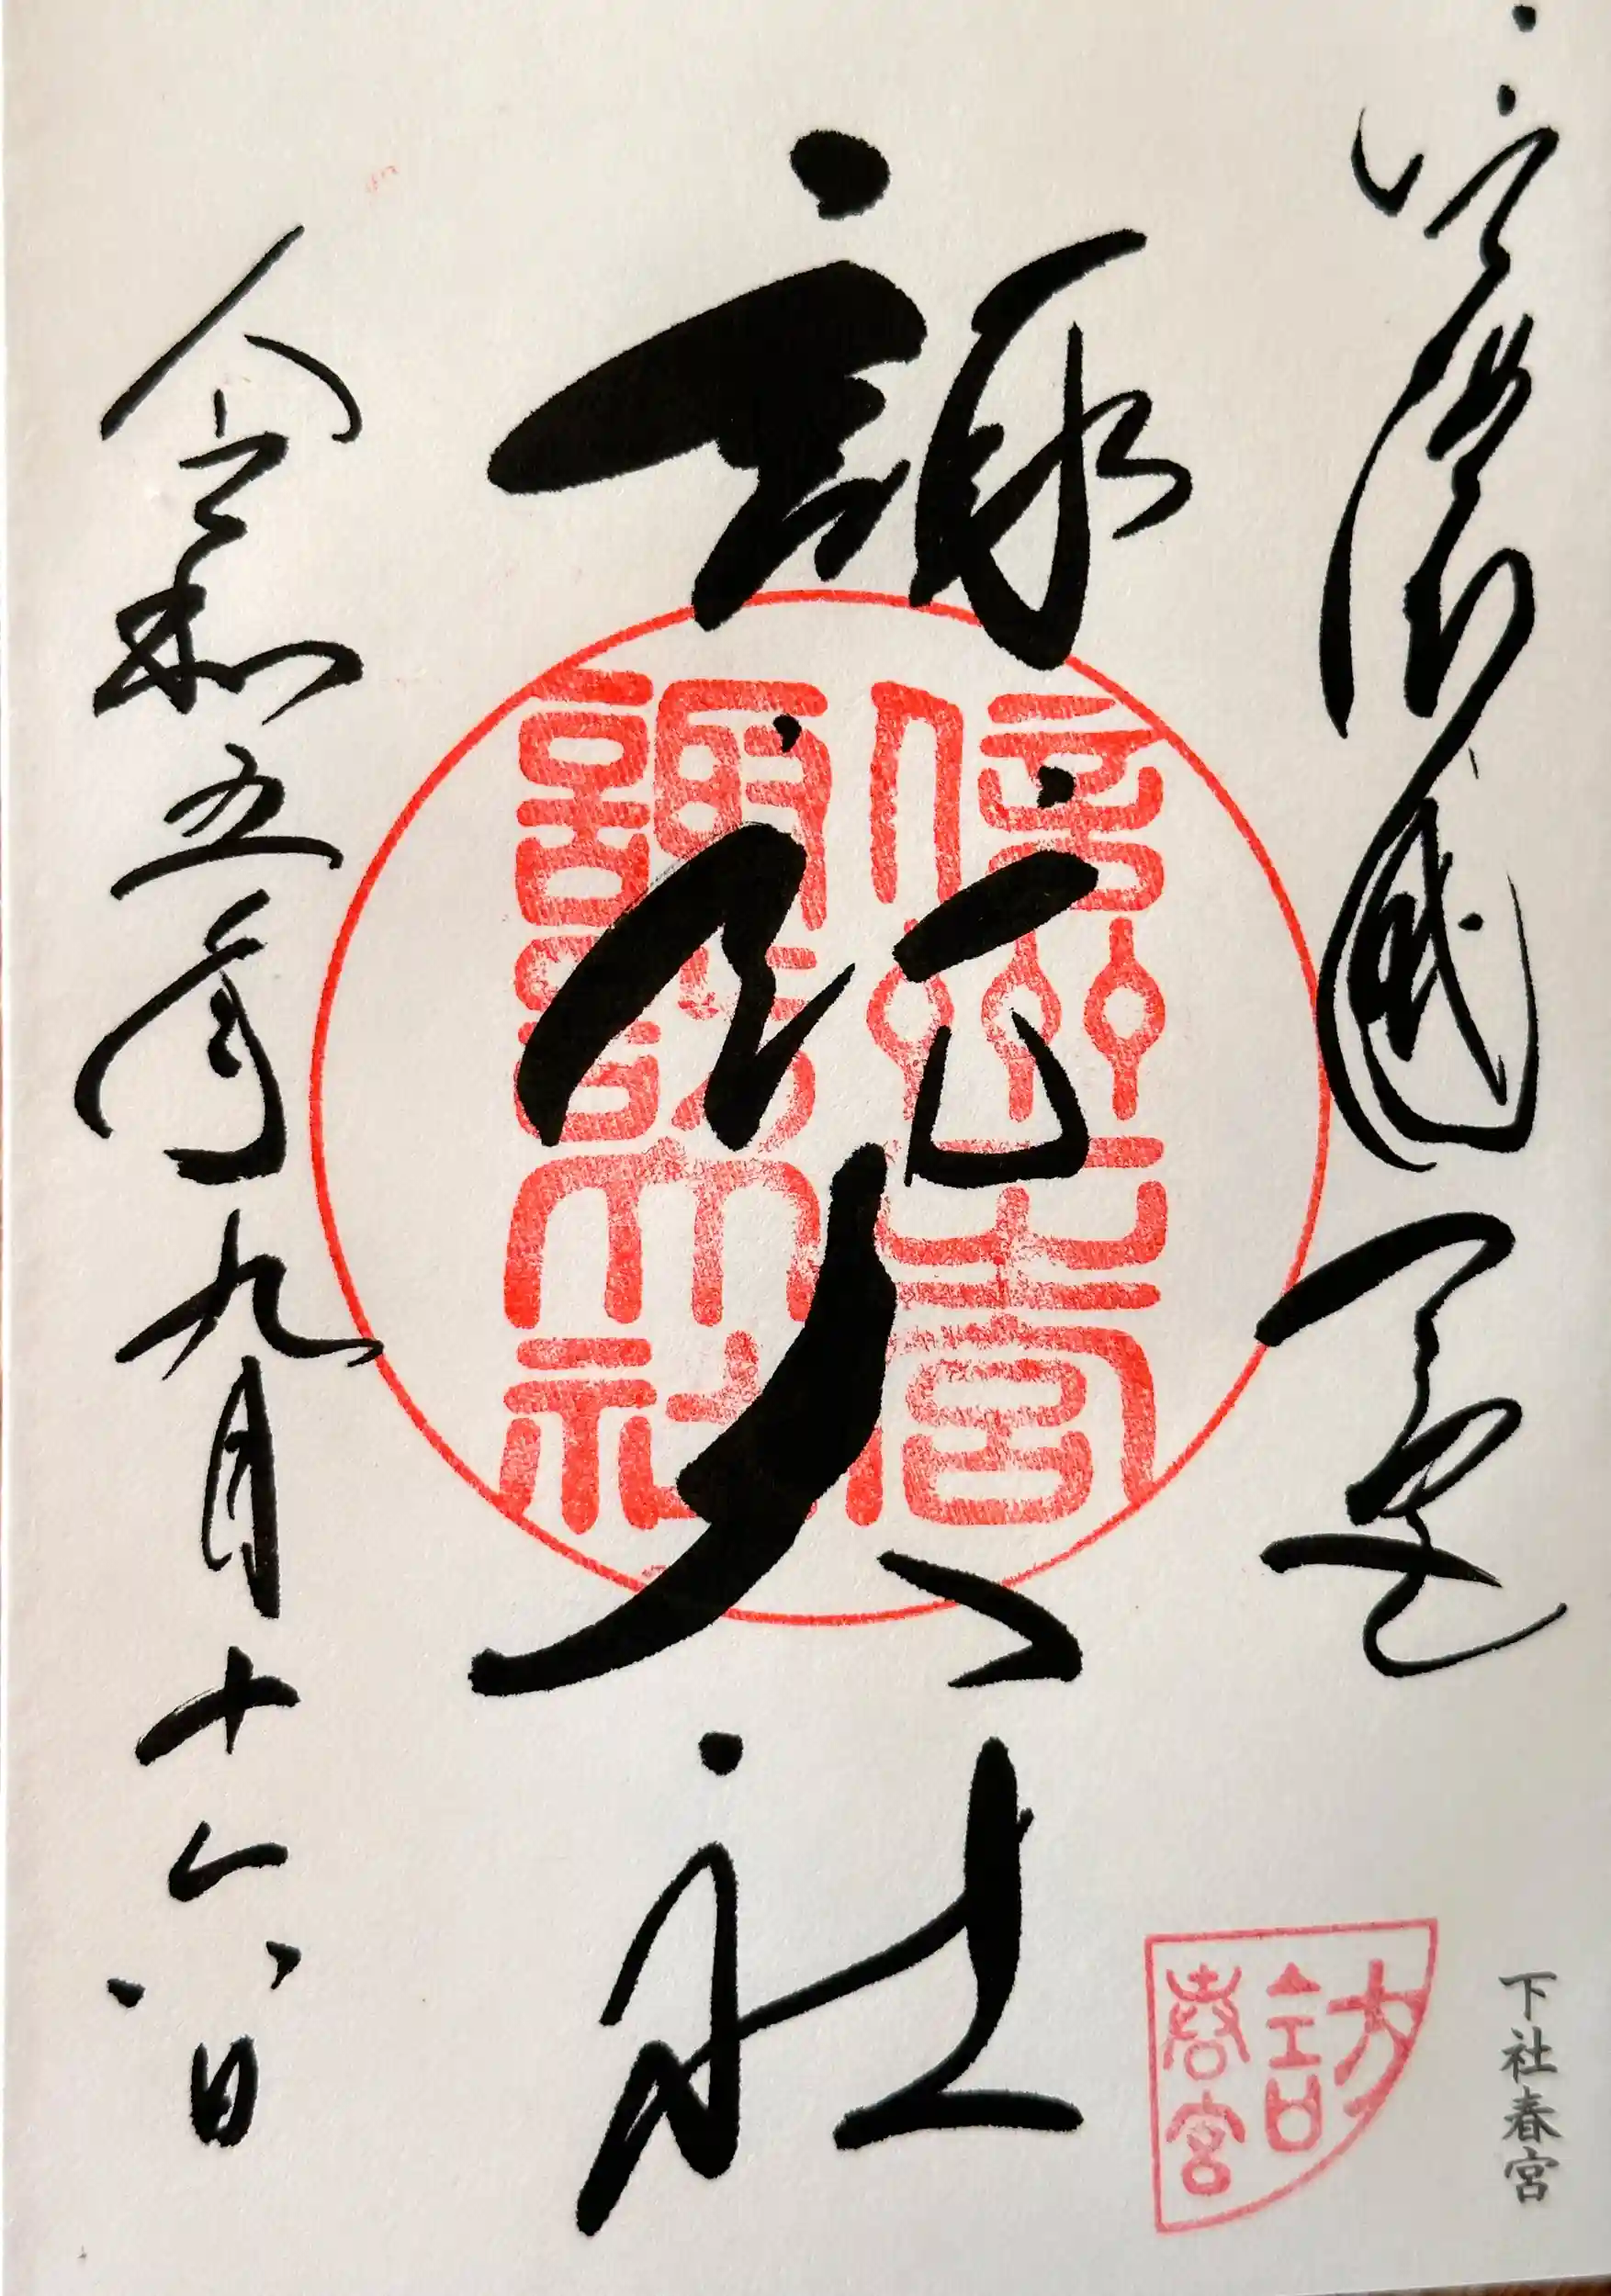 信濃國一宮
諏訪大社
令和五年九月十六日
信州一宮
諏訪大社
訪
春宮
下社春宮